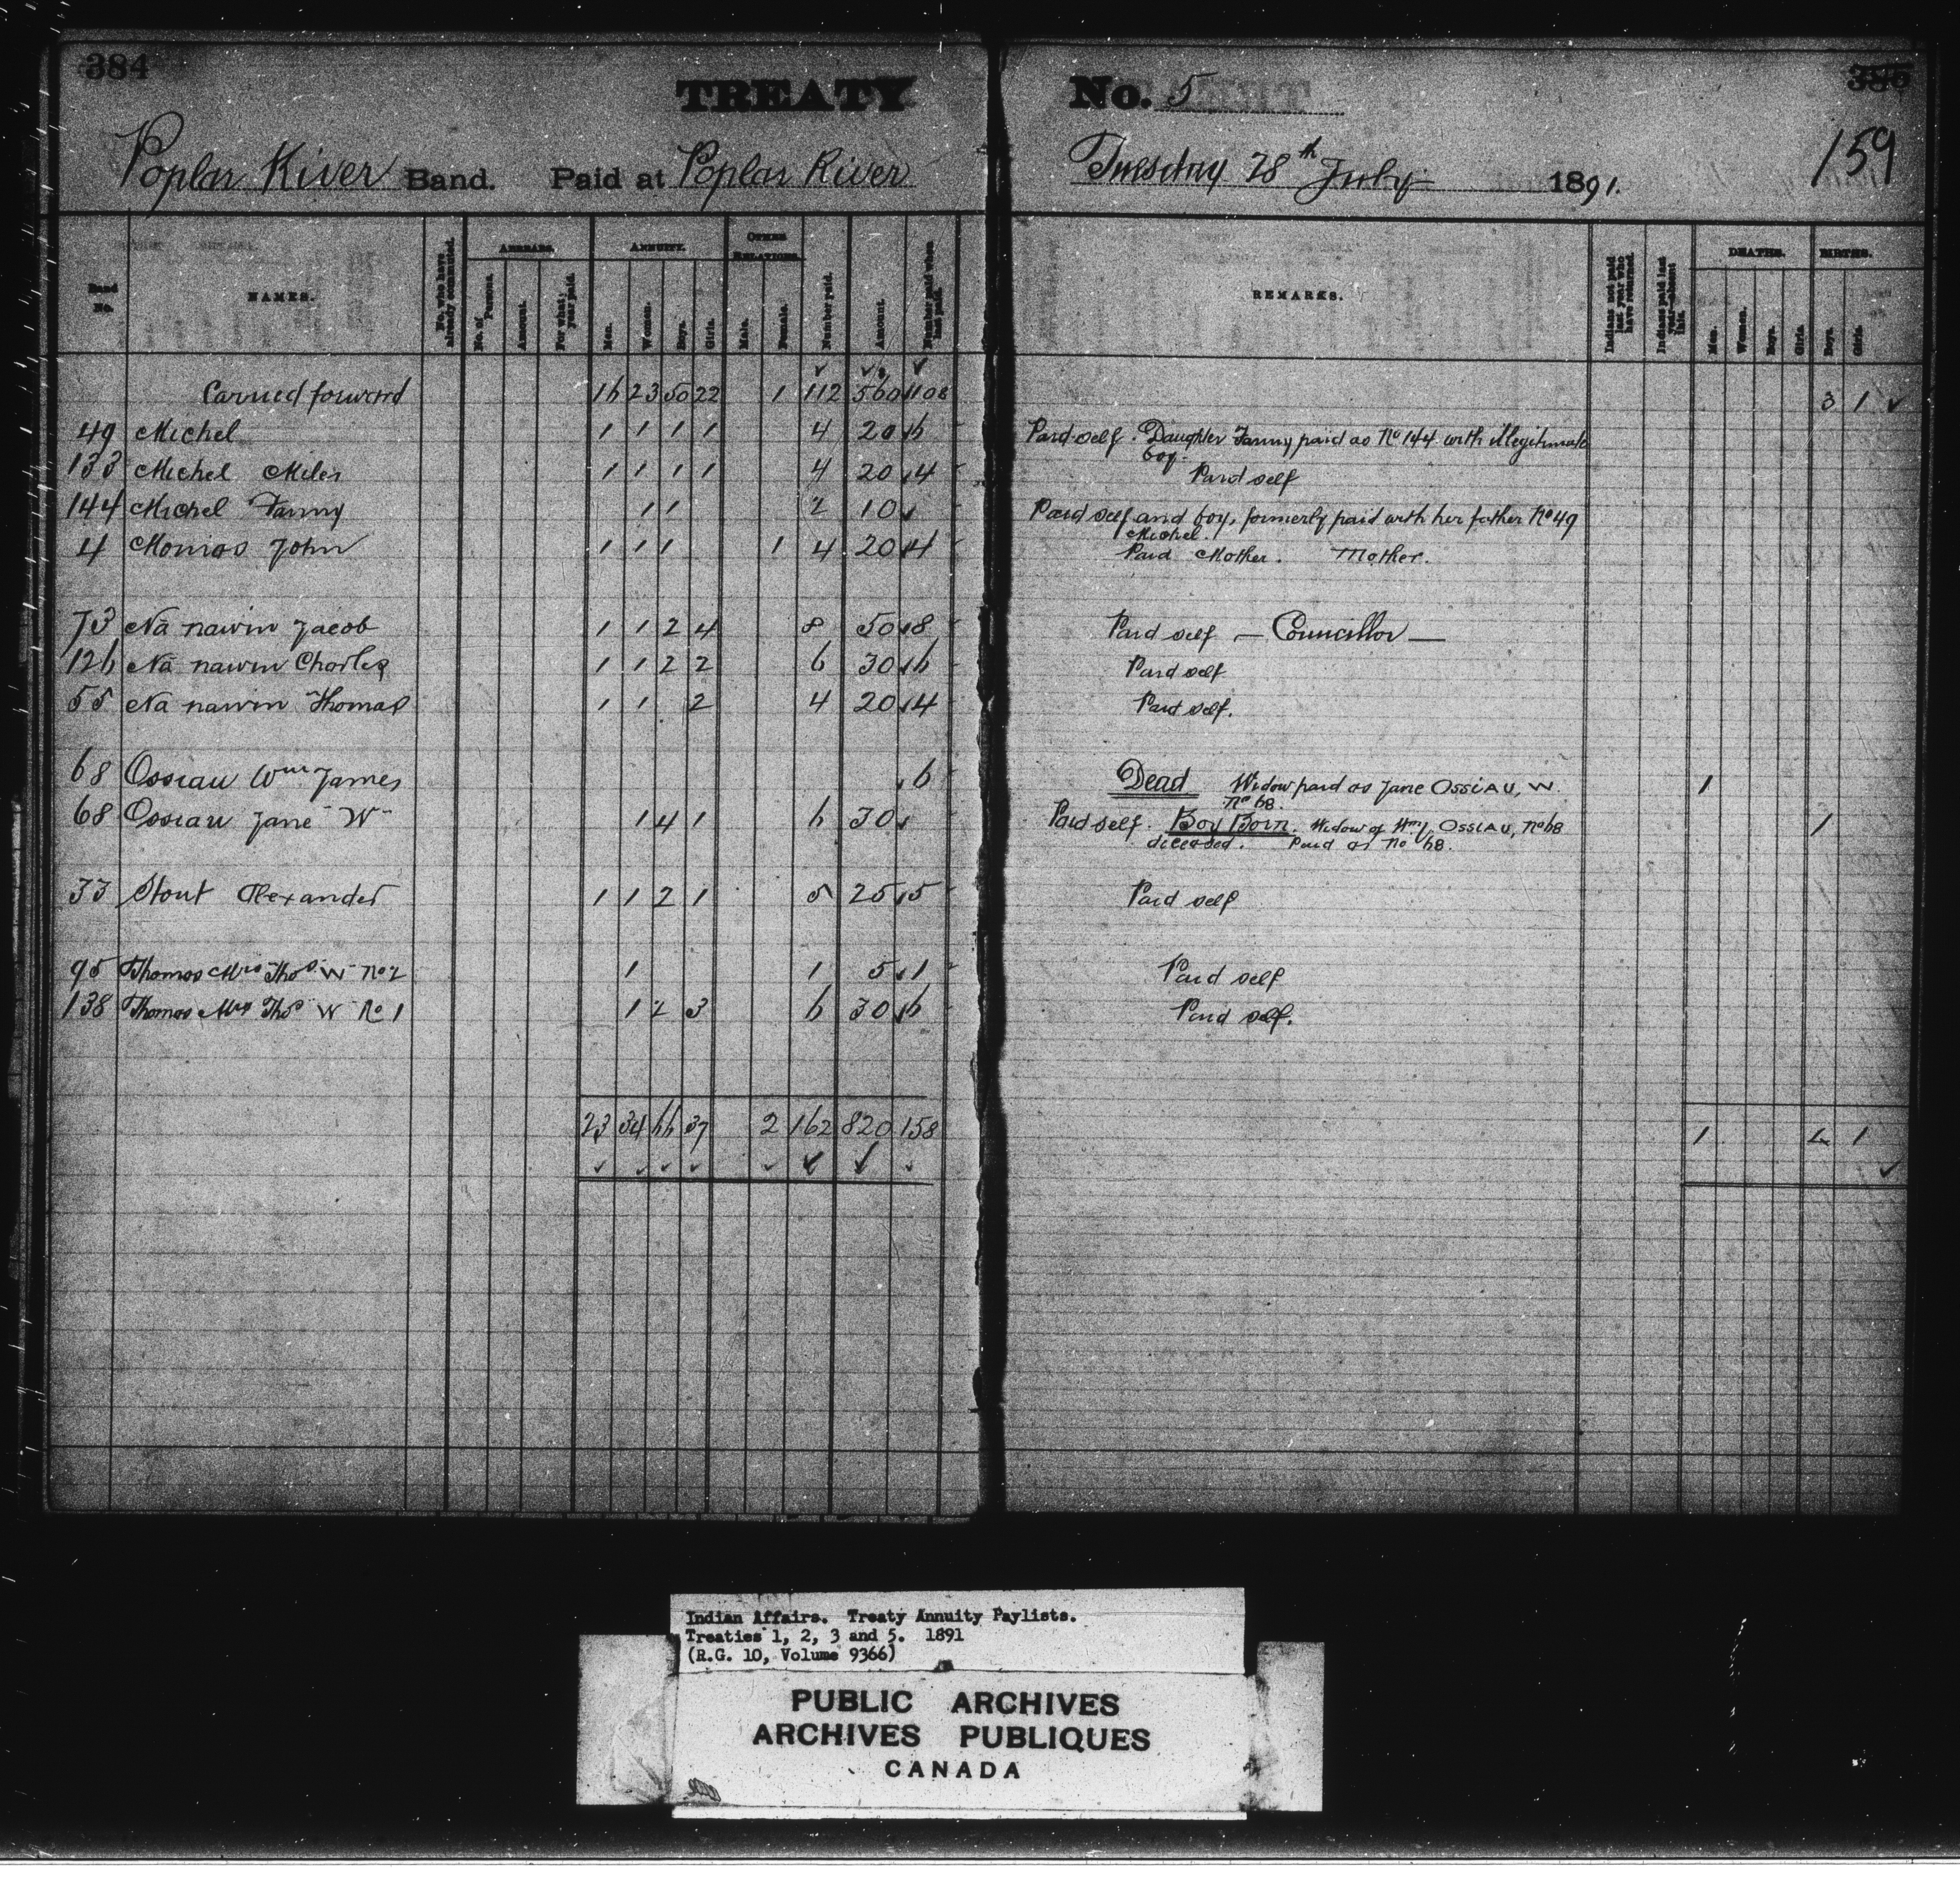 384
TREATY
No. 5
385
159
Poplar River Band. Paid at Poplar River
Tuesday 28th July 1891.
Band No.
NAMES.
No. who have already commuted.
ARREARS.
No. of Persons.
Amount.
For what year paid.
ANNUITY.
Men.
Women.
Boys.
Girls.
OTHER RELATIONS.
Male.
Female.
Number paid.
Amount.
Number paid when last paid.
REMARKS.
Indians not paid last year who have returned.
Indians paid last year absent this.
DEATHS.
Men.
Women.
Boys.
Girls.
BIRTHS.
Boys.
Girls.
Carried forward 16 23 50 22 1 112 560 108 3 1
49 Michel 1 1 1 1 4 20 6 Paid self. Daughter Fanny paid as No 144 with illegitimate
boy.
133 Michel Miles 1 1 1 1 4 20 4 Paid self
144 Michel Fanny 1 1 2 10 Paid self and boy, formerly paid with her father No 49
Michel.
4 Monias John 1 1 1 1 4 20 4 Paid Mother. Mother.
73 Na nawin Jacob 1 1 2 4 8 50 8 Paid self — Councillor —
126 Na nawin Charles 1 1 2 2 6 30 6 Paid self
55 Na nawin Thomas 1 1 2 4 20 4 Paid self.
68 Ossiau Wm James 6 Dead Widow paid as Jane OSSIAU, W. 1
No 68.
68 Ossiau Jane "W" 1 4 1 6 30 Paid self. Boy Born. Widow of Wm J. OSSIAU, No 68 1
deceased. Paid as No 68.
33 Stout Alexander 1 1 2 1 5 25 5 Paid self
95 Thomas Mrs Thos "W" No 2 1 1 5 1 Paid self
138 Thomas Mrs Thos "W" No 1 1 2 3 6 30 6 Paid self.
23 34 66 37 2 162 820 158 1 4 1
Indian Affairs. Treaty Annuity Paylists.
Treaties 1, 2, 3 and 5. 1891
(R.G. 10, Volume 9366)
PUBLIC ARCHIVES
ARCHIVES PUBLIQUES
CANADA